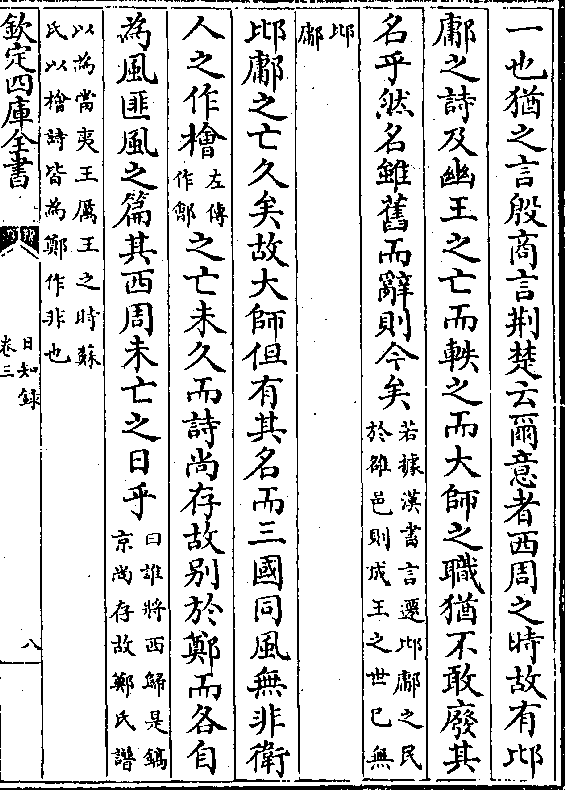 一也猶之言殷商言荆楚云爾意者西周之時故有邶
鄘之詩及幽王之亡而軼之而大師之職猶不敢廢其
名乎然名雖舊而辭則今矣
若據漢書言遷邶鄘之民
於雒邑則成王之世已無
邶
鄘
邶鄘之亡久矣故大師但有其名而三國同風無非衛
人之作檜
左傳
作鄶
之亡未久而詩尚存故别於鄭而各自
為風匪風之篇其西周未亡之日乎
曰誰將西歸是鎬
京尚存故鄭氏譜
以為當夷王厲王之時蘇
氏以檜詩皆為鄭作非也
欽定四庫全書
日知録
卷三
八